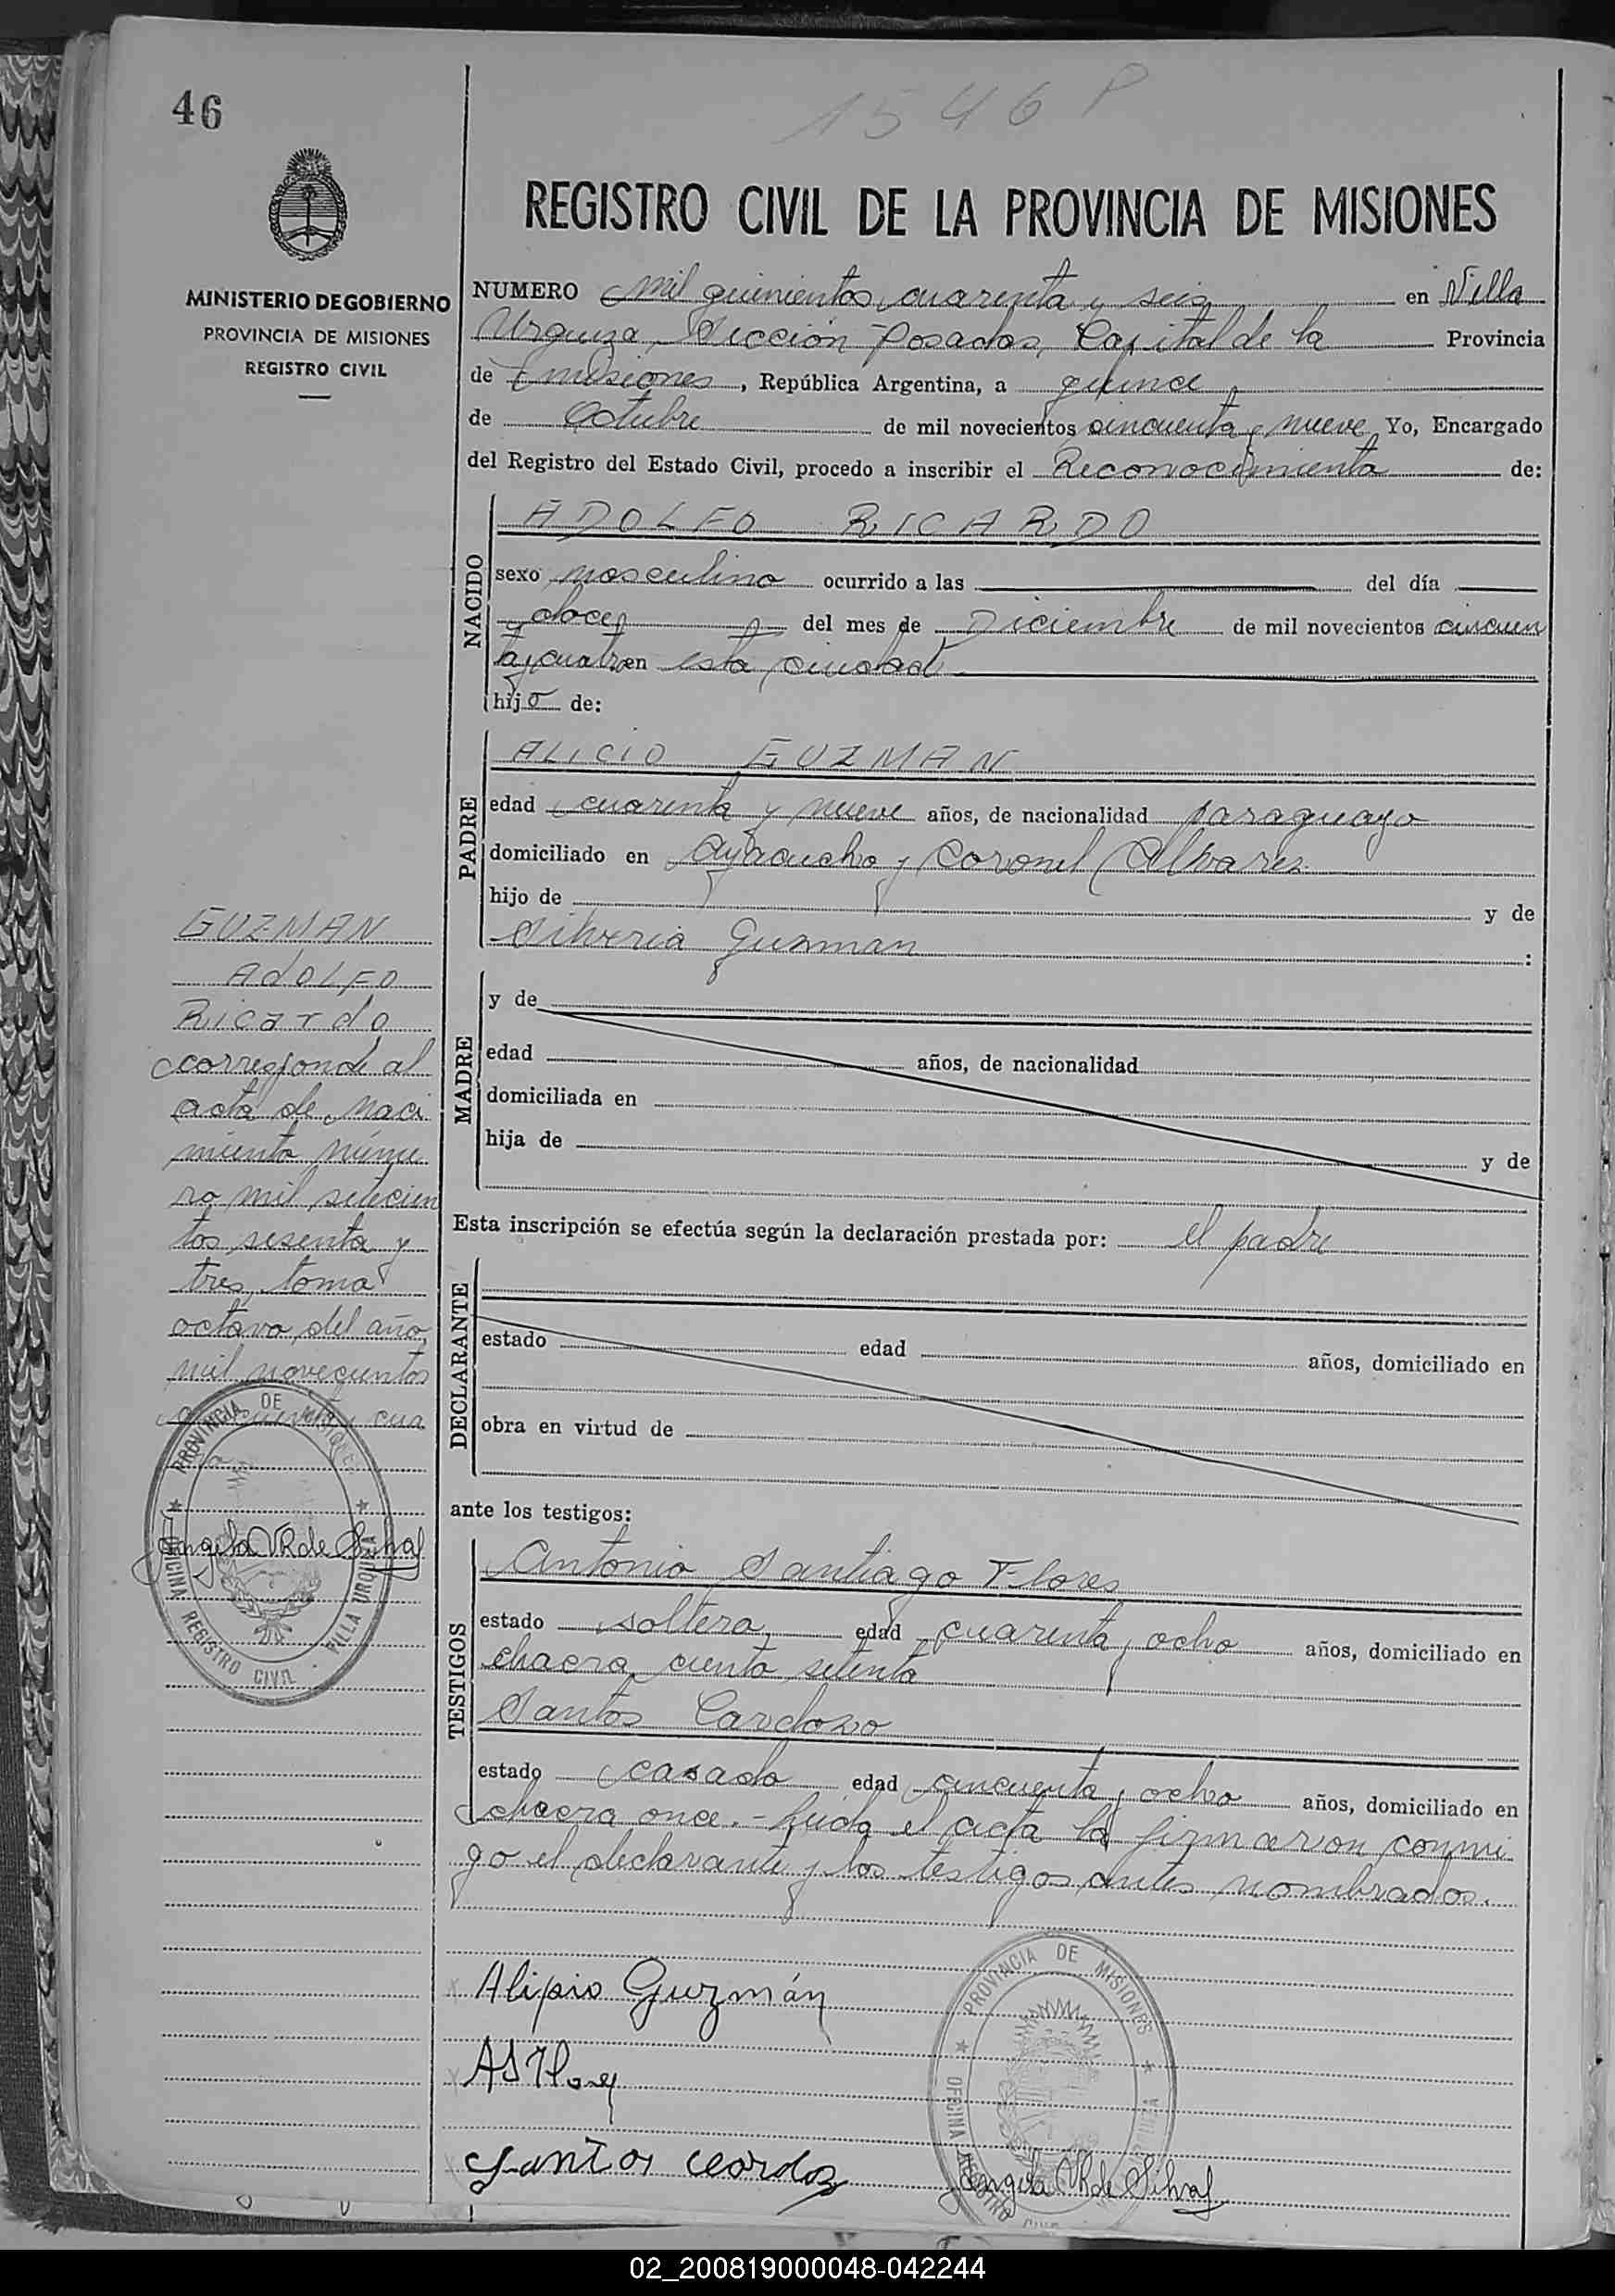 46
1546 P
REGISTRO CIVIL DE LA PROVINCIA DE MISIONES
MINISTERIO DE GOBIERNO
PROVINCIA DE MISIONES
REGISTRO CIVIL
NUMERO mil quinientos cuarenta y seis en Villa
Urquiza, Sección Posadas, Capital de la Provincia
de Misiones, República Argentina, a quince
de Octubre de mil novecientos cincuenta y nueve Yo, Encargado
del Registro del Estado Civil, procedo a inscribir el Reconocimiento de:
NACIDO
ADOLFO RICARDO
sexo masculino ocurrido a las del día
doce del mes de Diciembre de mil novecientos cincuen
ta y cuatro en esta ciudad
hijo de:
PADRE
ALICIO GUZMAN
edad cuarenta y nueve años, de nacionalidad paraguayo
domiciliado en Ayacucho y Coronel Alvarez
hijo de y de
Silveria Guzman :
MADRE
y de
edad años, de nacionalidad
domiciliada en
hija de y de
GUZMAN
ADOLFO
Ricardo
corresponde al
acta de naci
miento núme
ro mil setecien
tos sesenta y
tres, tomo
octavo del año
mil novecientos
cincuenta y cua
tro
Angela VR de Silva
PROVINCIA DE MISIONES
OFICINA REGISTRO CIVIL · VILLA URQUIZA
Esta inscripción se efectúa según la declaración prestada por: el padre
DECLARANTE
estado edad años, domiciliado en
obra en virtud de
ante los testigos:
TESTIGOS
Antonio Santiago Flores
estado soltero, edad cuarenta y ocho años, domiciliado en
chacra ciento setenta
Santos Cardozo
estado casado edad cincuenta y ocho años, domiciliado en
chacra once.- Leida el acta la firmaron conmi
go el declarante y los testigos antes nombrados.
Alipio Guzmán
ASFlores
Santos Cardozo
PROVINCIA DE MISIONES
OFICINA REGISTRO CIVIL
Angela VR de Silva
02_200819000048-042244